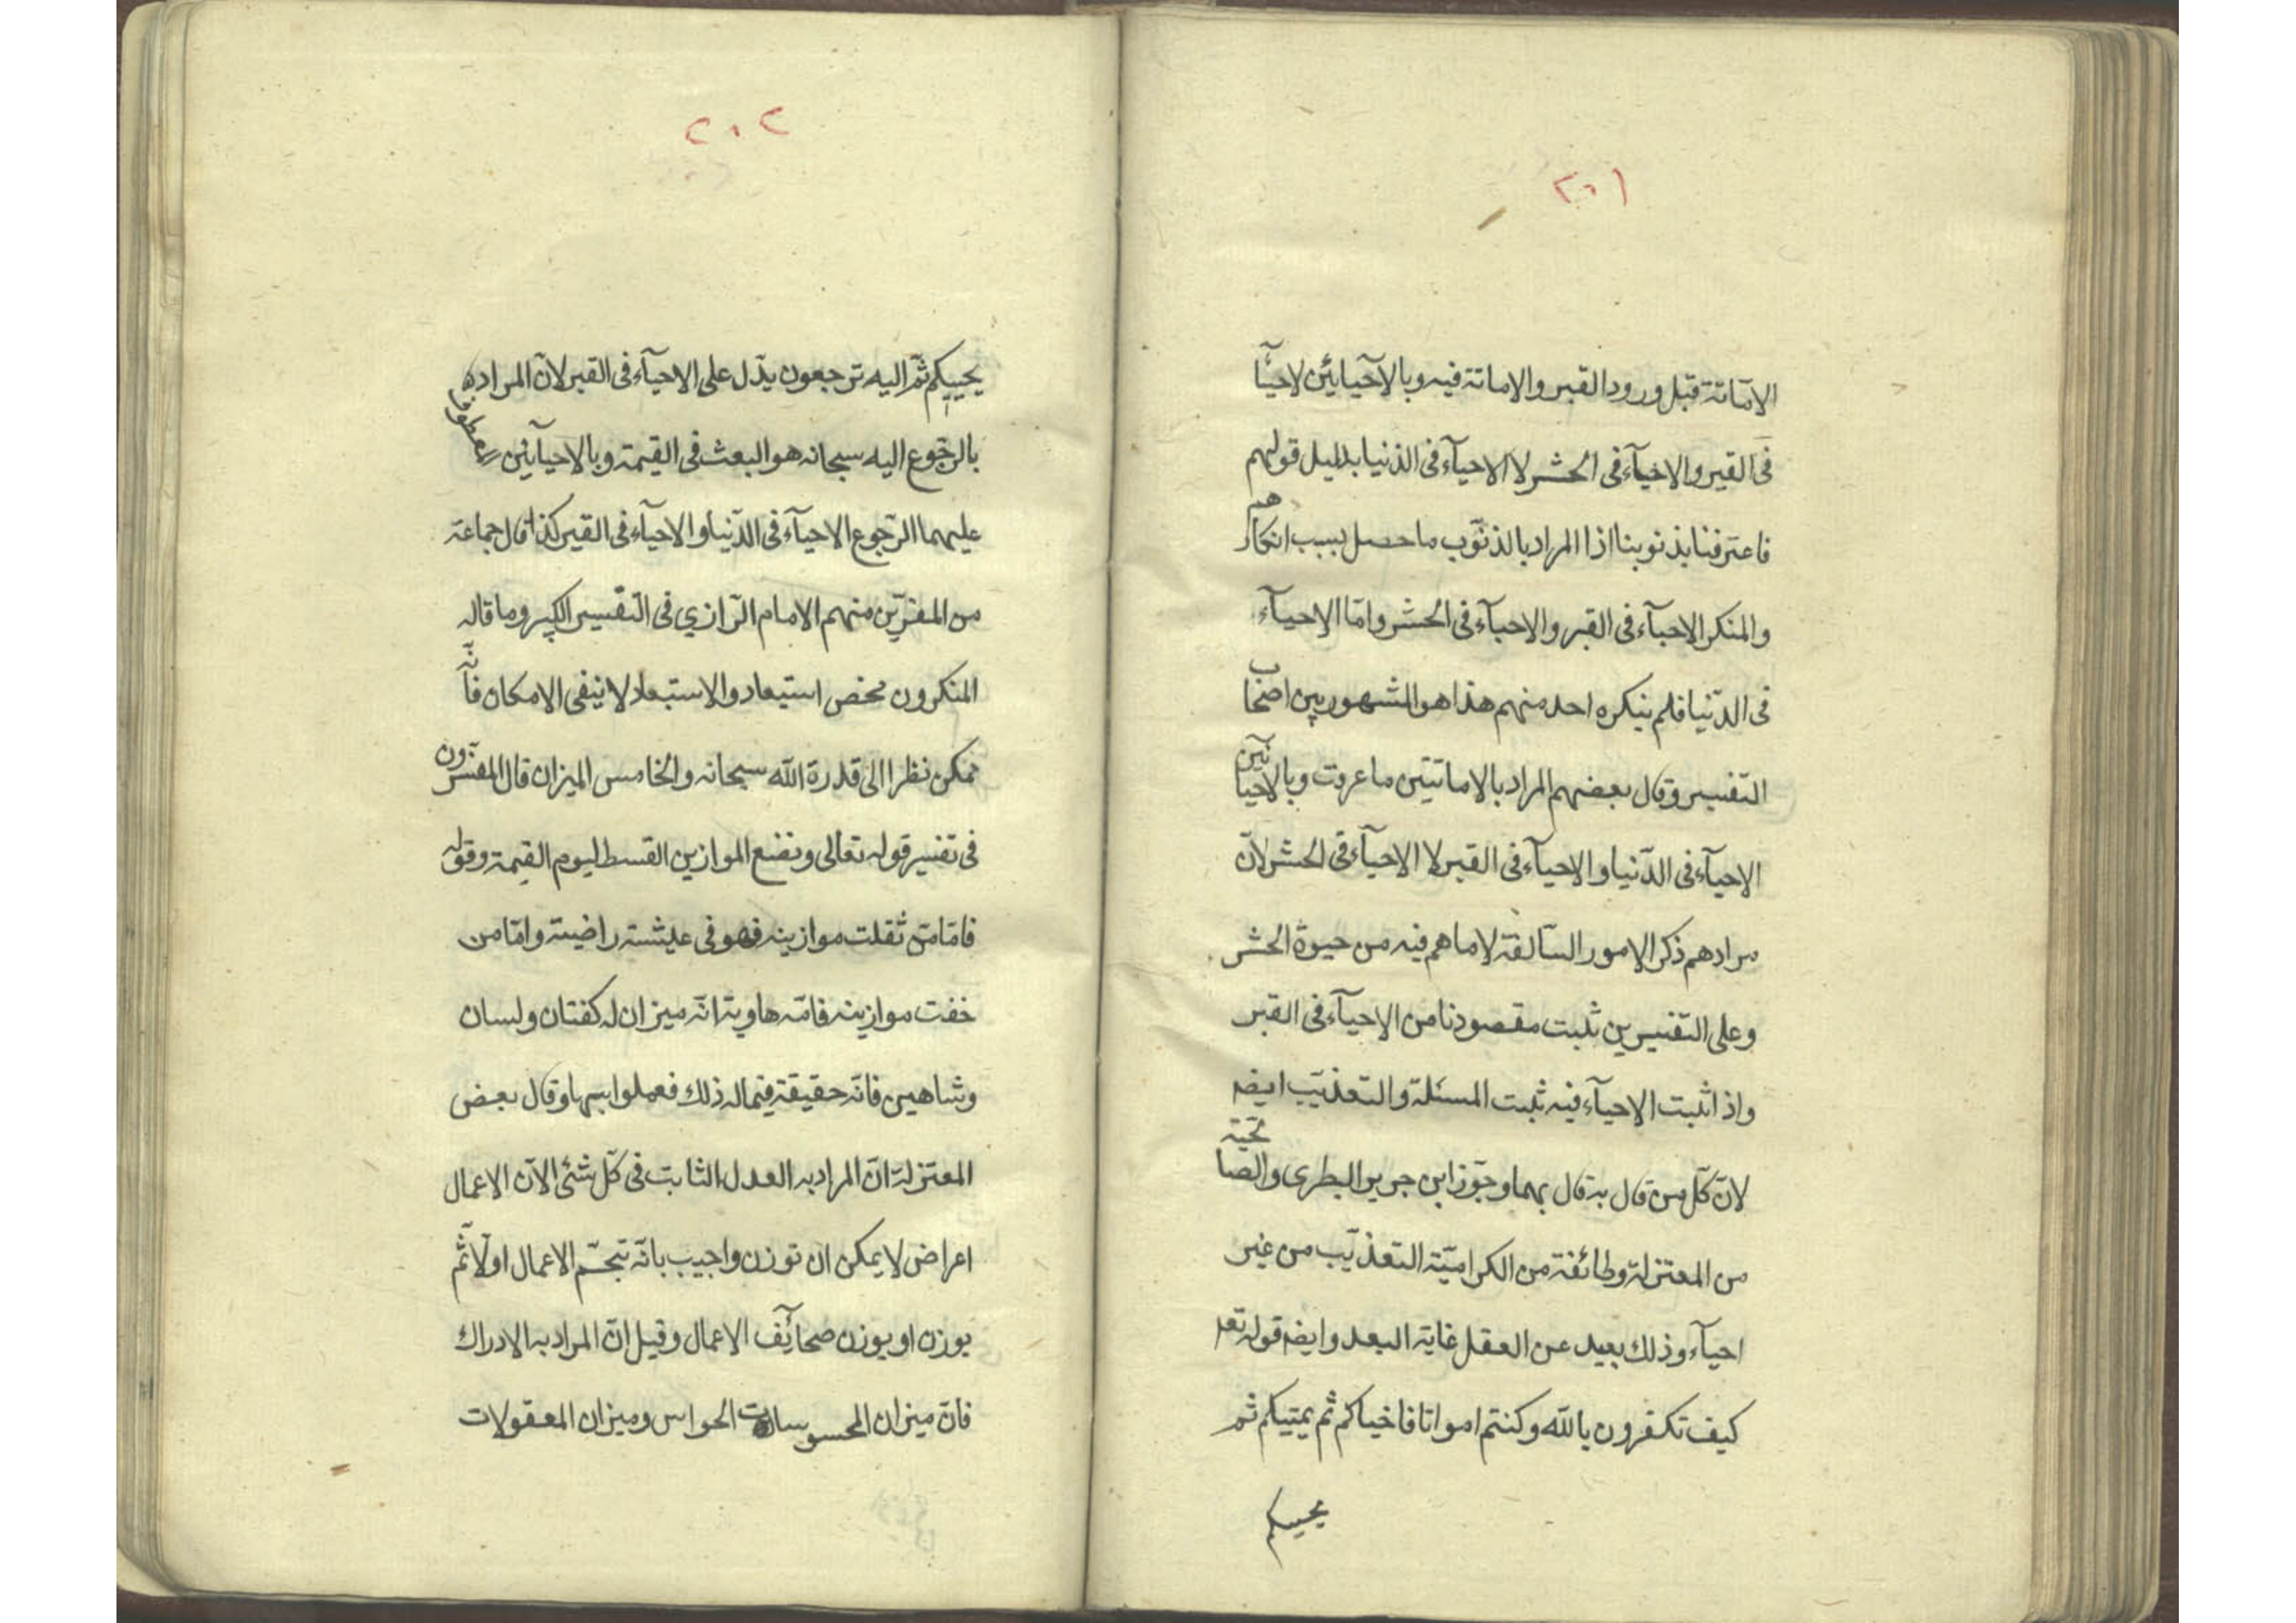 ٢٠١
الاماتة قبل ورود القبر والاماتة فيه وبالاحيائين لاحياء
فى القبر والاحياء فى الحشر لا الاحياء فى الدنيا بدليل قولهم
فاعترفنا بذنوبنا اذا المراد بالذنوب ما حصل بسبب انكارهم
والمنكر الاحياء فى القبر والاحياء فى الحشر واما الاحياء
فى الدنيا فلم ينكره احد منهم هذا هو المشهور بين اصحاب
التفسير وقال بعضهم المراد بالاماتتين ما عرفت وبالاحيائين
الاحياء فى الدنيا والاحياء فى القبر لا الاحياء فى الحشر لان
مرادهم ذكر الامور السالفة لا ما هم فيه من حيوة الحشر
وعلى التفسيرين ثبت مقصودنا من الاحياء فى القبر
واذا ثبت الاحياء فيه ثبت المسئلة والتعذيب ايضه
لان كل من قال به قال بهما وجوز ابن جرير البطرى والصالحية
من المعتزلة وطائفة من الكرامية التعذيب من غير
احياء وذلك بعيد عن العقل غاية البعد وايضه قوله تعه
كيف تكفرون بالله وكنتم امواتا فاحياكم ثم يميتكم ثم
يحييكم
٢٠٢
يحييكم ثم اليه ترجعون يدل على الاحياء فى القبر لان المراد
بالرجوع اليه سبحانه هو البعث فى القيمة وبالاحيائين
عليهما الرجوع الاحياء فى الدنيا والاحياء فى القبر كذا قال جماعة
من المفسرين منهم الامام الرازي فى التفسير الكبير وما قاله
المنكرون محض استبعاد والاستبعاد لا ينفى الامكان فانه
ممكن نظرا الى قدرة الله سبحانه والخامس الميزان قال المفسرون
فى تفسير قوله تعالى ونضع الموازين القسط ليوم القيمة وقوله
فاما من ثقلت موازينه فهو فى عيشة راضية واما من
خفت موازينه فامه هاوية انه ميزان له كفتان ولسان
وشاهين فانه حقيقة فيما له ذلك فعملوا بها وقال بعض
المعتزلة ان المراد به العدل الثابت فى كل شئ الان الاعمال
اعراض لا يمكن ان توزن واجيب بانه تتجسم الاعمال اولا ثم
يوزن او يوزن صحائف الاعمال وقيل ان المراد به الادراك
فان ميزان المحسوسات الحواس وميزان المعقولات